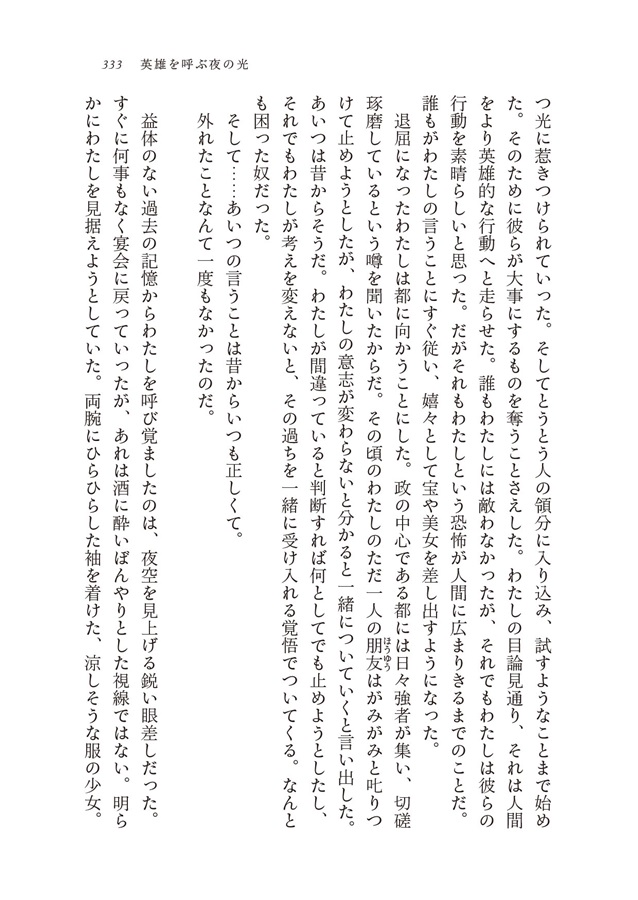 333 英雄を呼ぶ夜の光
つ光に惹きつけられていった。そしてとうとう人の領分に入り込み、試すようなことまで始め
た。そのために彼らが大事にするものを奪うことさえした。わたしの目論見通り、それは人間
をより英雄的な行動へと走らせた。誰もわたしには敵わなかったが、それでもわたしは彼らの
行動を素晴らしいと思った。だがそれもわたしという恐怖が人間に広まりきるまでのことだ。
誰もがわたしの言うことにすぐ従い、嬉々として宝や美女を差し出すようになった。
退屈になったわたしは都に向かうことにした。政の中心である都には日々強者が集い、切磋
琢磨しているという噂を聞いたからだ。その頃のわたしのただ一人の朋友はがみがみと叱りつ
ほうゆう
けて止めようとしたが、わたしの意志が変わらないと分かると一緒についていくと言い出した。
あいつは昔からそうだ。わたしが間違っていると判断すれば何としてでも止めようとしたし、
それでもわたしが考えを変えないと、その過ちを一緒に受け入れる覚悟でついてくる。なんと
も困った奴だった。
そして……あいつの言うことは昔からいつも正しくて。
外れたことなんて一度もなかったのだ。
益体のない過去の記憶からわたしを呼び覚ましたのは、夜空を見上げる鋭い眼差しだった。
すぐに何事もなく宴会に戻っていったが、あれは酒に酔いぼんやりとした視線ではない。明ら
かにわたしを見据えようとしていた。両腕にひらひらした袖を着けた、涼しそうな服の少女。